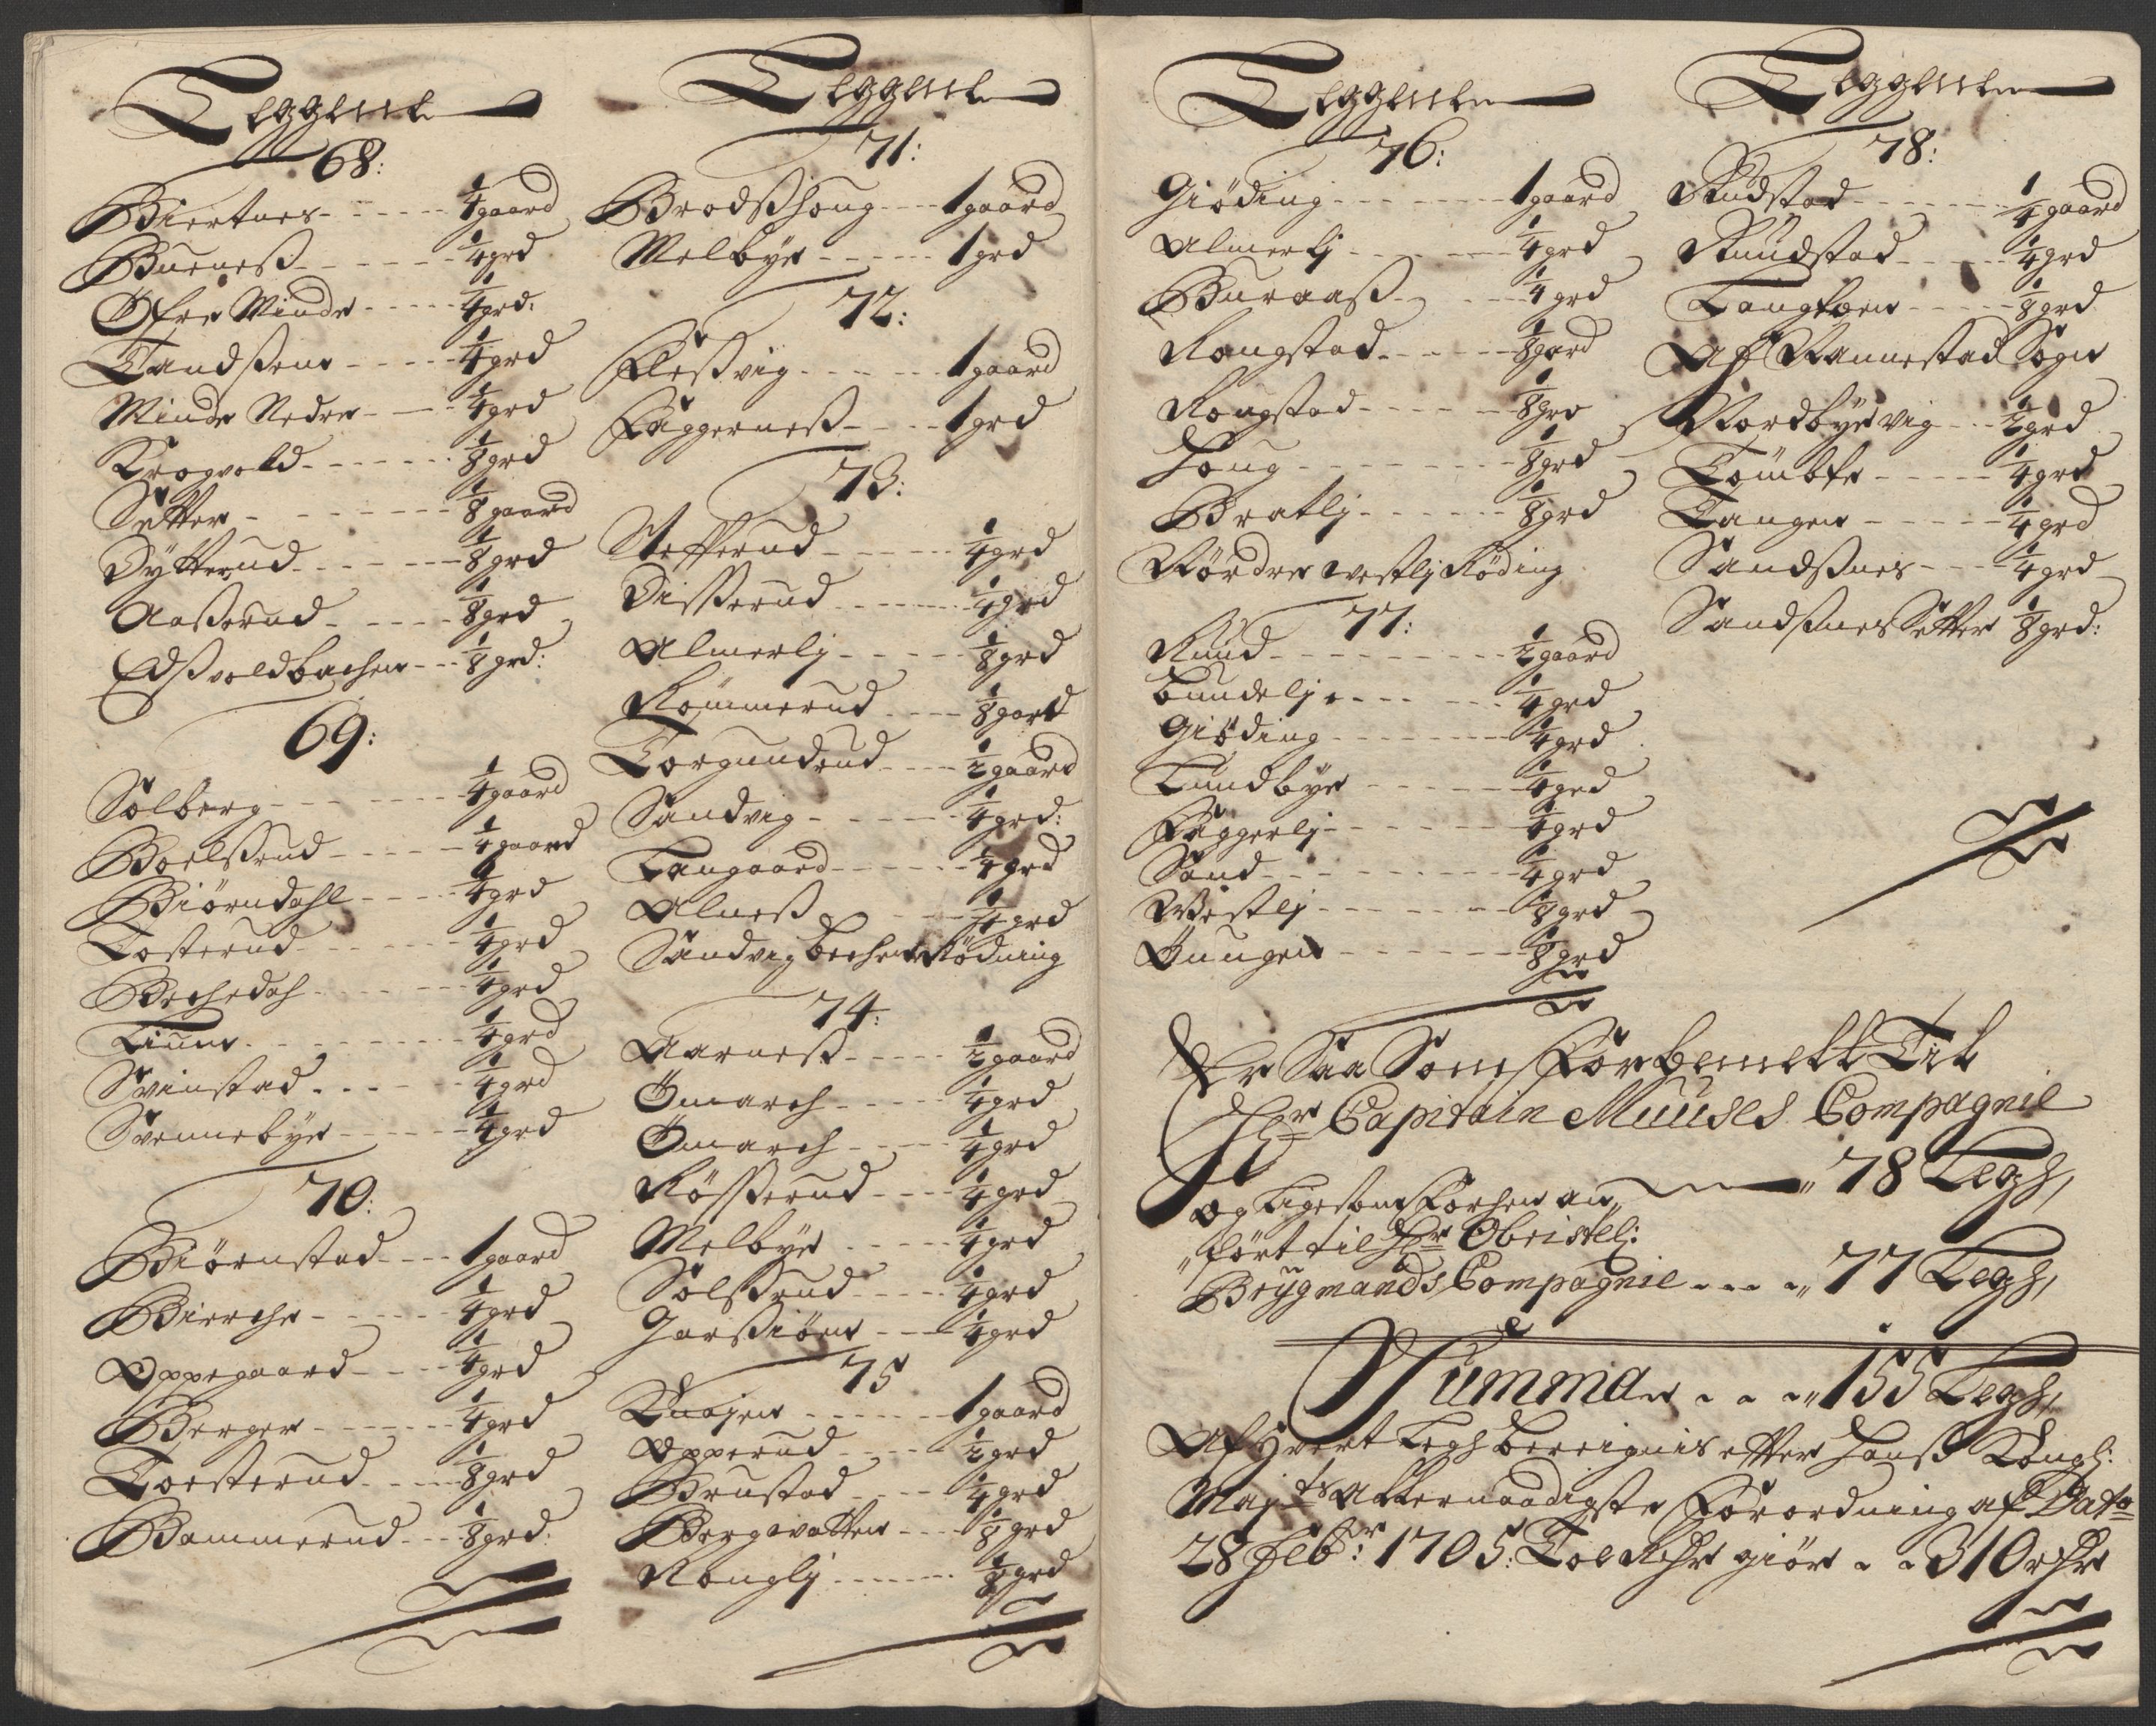 Leggene
68:
Biertnes - - - - - 1/4 gaard
Bueness - - - - - 1/4 grd
Øfre Minde - - - - 1/4 grd:
Tandssene - - - - 1/4 grd
Minde Nedre - - - 1/4 grd
Krogvold - - - - - - 1/8 grd
Setter - - - - - - - 1/8 gaard
Dytterud - - - - - - 1/8 grd
Aasserud - - - - - 1/8 grd
Edssvoldbachen - - - 1/8 grd:
69:
Solberg - - - - - - 1/4 gaard
Boelssrud - - - - - 1/4 gaard
Biørndahl - - - - 1/4 grd
Tosterud - - - - - 1/4 grd
Bechedah - - - - - 1/4 grd
Liune - - - - - - - 1/4 grd
Svinstad - - - - - 1/4 grd
Svennebye - - - - - 1/4 grd
70:
Biørnstad - - - 1 gaard
Bierche - - - - - 1/4 grd
Oppegaard - - - 1/4 grd
Berger - - - - - - 1/4 grd
Toesterud - - - - 1/8 grd
Bammerud - - - 1/8 grd:
Leggene
71:
Brodsshoug - - - 1 gaard
Melbye - - - - - 1 grd
72:
Elessvig - - - - - - 1 gaard
Faggerness - - - - 1 grd
73:
Stefferud - - - - - 1/4 grd
Disserud - - - - - - 1/4 grd
Almerlj - - - - - 1/8 grd
Rommerud - - - - 1/8 gard
Torgundrud - - - 1/2 gaard
Sandvig - - - - - - 1/4 grd:
Langaard - - - - - - 1/4 grd
Alness - - - 1/4 grd
Sandvig bechen Rødning
74:
Aarness - - - - 1/2 gaard
Ømarch - - - - - 1/4 grd
Ømarch - - - - 1/4 grd
Røsserud - - - 1/4 grd
Melbye - - - - - 1/4 grd
Solssrud - - - - 1/4 grd
Jarssiøne - - - 1/4 grd
75
Knajen - - - - - - 1 gaard
Opperud - - - - 1/2 grd
Brustad - - - - 1/4 grd
Bergsvatten - - - 1/8 grd
Rouglj - - - - - - 1/8 grd
Leggene
76:
Giøding - - - - - - - 1 gaard
Almerlj - - - - - - 1/4 grd
Buraass - - - - - 1/4 grd
Rougstad - - - - - 1/8 gard
Rougstad - - - - - 1/8 grd
Houg - - - - - - - 1/8 grd
Bratlj - - - - - - 1/8 grd
Nordre vestlj Røding
77:
Ruud - - - - - - - - - 1/2 gaard
Bundelj - - - - - - 1/4 grd
Giøding - - - - - - - 1/4 grd
Lundbye - - - - - 1/4 grd
Faggerlj - - - - - - 1/4 grd
Sand - - - - - - - - - 1/4 grd
Westlj - - - - - - - 1/8 grd
Øuugen - - - - - - - 1/8 grd
Leggene
78:
Rudstad - - - - - - - 1/4 gaard
Ruudstad - - - - - 1/4 grd
Langfoen - - - - 1/8 grd
Af Rannestad Sogn
Nordbye vig - - - 1/2 grd
Tømbte - - - - - 1/4 grd
Tangen - - - - - 1/4 grd
Sandssnes - - - 1/4 grd
Sandssnes Setter 1/8 grd:
Er Saa Som forbemelt Til
Hr Capitain Muuses Compagnie
78 Legh,
og ligesom forhen an
ført til Hr Obristl:
Brygmands Compagnie - - - 77 Legh,
Summa - - - 155 Legh,
Af hvert Legh bereignis effter Hanss Kongl:
Majts Allernaadigste forordning af Dato
28 Feb: 1705: Toe Rdr giør - - 310 rdr